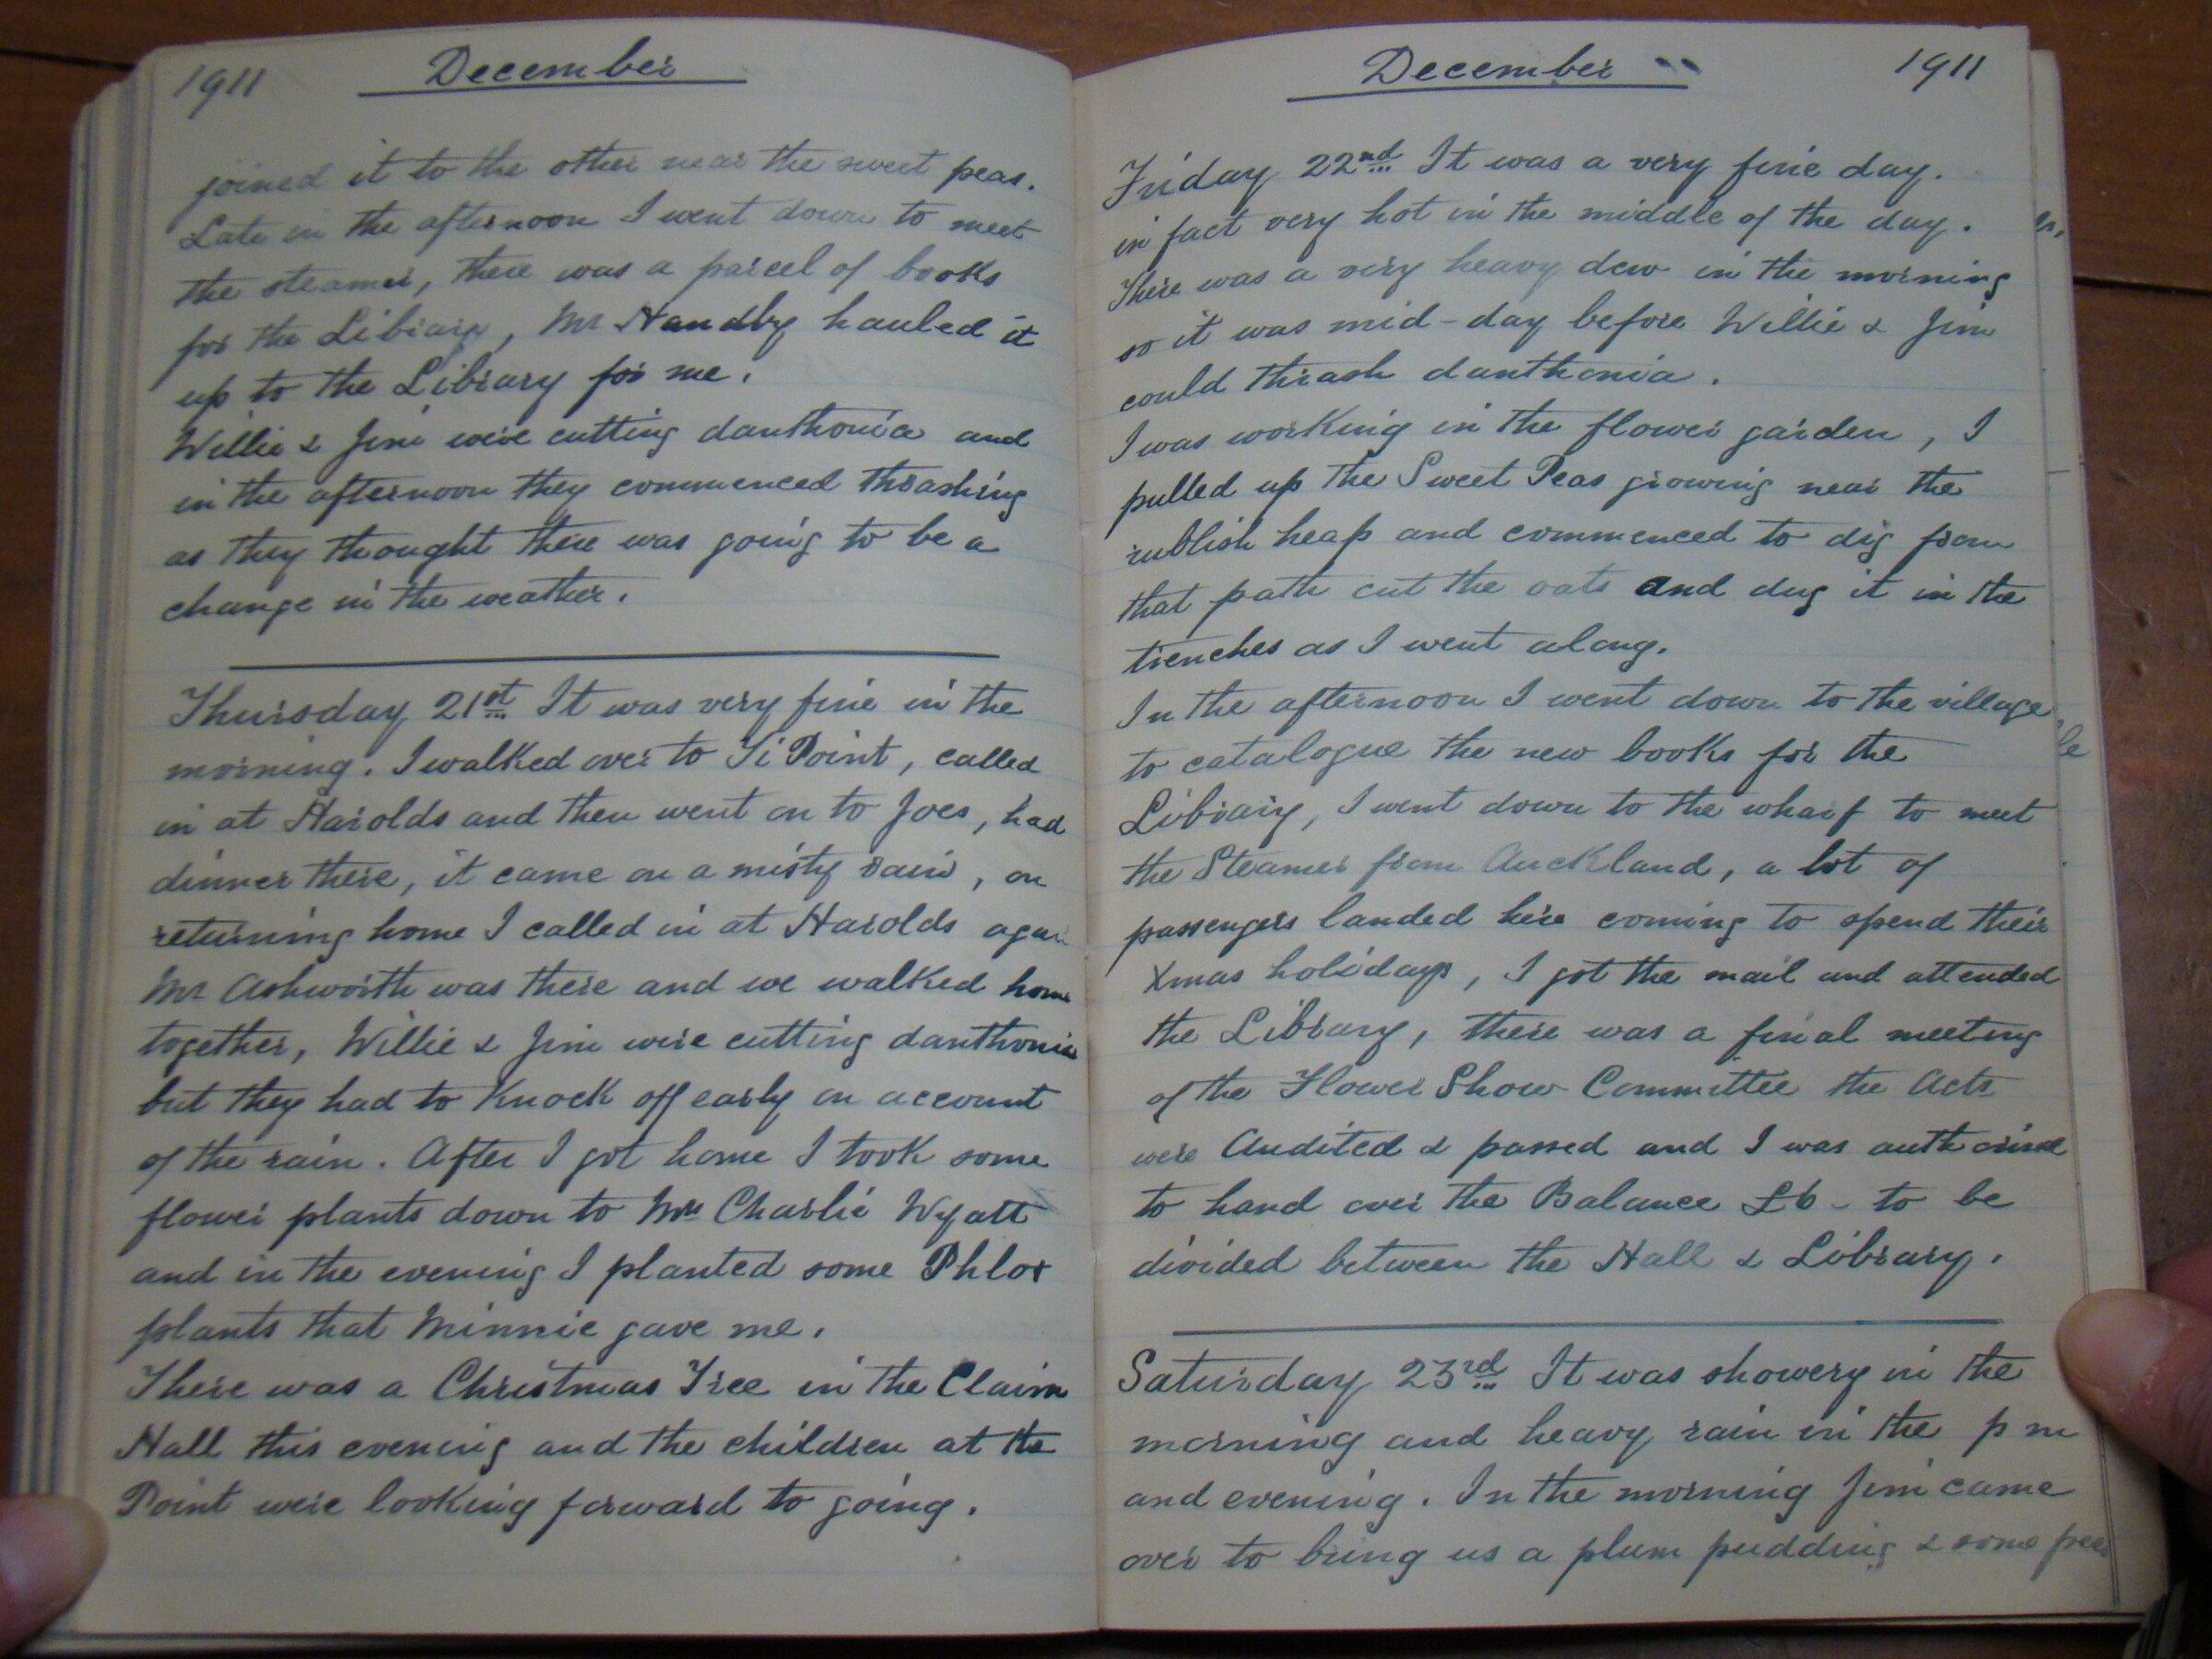 1911 December
joined it to the other near the sweet peas.
Late in the afternoon I went down to meet
the steamer, there was a parcel of books
for the Library, Mr Handby hauled it
up to the Library for me.
Willie & Jim were cutting danthonia and
in the afternoon they commenced thrashing
as they thought there was going to be a
change in the weather.
Thursday 21st It was very fine in the
morning. I walked over to Ti Point, called
in at Harolds and then went on to Joes, had
dinner there, it came on a misty rain, on
returning home I called in at Harolds again
Mr Ashworth was there and we walked home
together, Willie & Jim were cutting danthonia
but they had to Knock off early on account
of the rain. After I got home I took some
flower plants down to Mrs Charlie Wyatt
and in the evening I planted some Phlox
plants that Minnie gave me.
There was a Christmas Tree in the Claim
Hall this evening and the children at the
Point were looking forward to going.
December 1911
Friday 22nd It was a very fine day.
in fact very hot in the middle of the day.
There was a very heavy dew in the morning
so it was mid-day before Willie & Jim
could thrash danthonia.
I was working in the flower garden, I
pulled up the Sweet Peas growing near the
rublish heap and commenced to dig from
that path cut the oats and dug it in the
trenches as I went along.
In the afternoon I went down to the village
to catalogue the new books for the
Library, I went down to the wharf to meet
the Steamer from Auckland, a lot of
passengers landed here coming to spend their
Xmas holidays, I got the mail and attended
the Library, there was a final meeting
of the Flower Show Committee the Acts
were Audited & passed and I was authorised
to hand over the Balance £6 - to be
divided between the Hall & Library.
Saturday 23rd It was showery in the
morning and heavy rain in the p m
and evening. In the morning Jim came
over to bring us a plum pudding & some